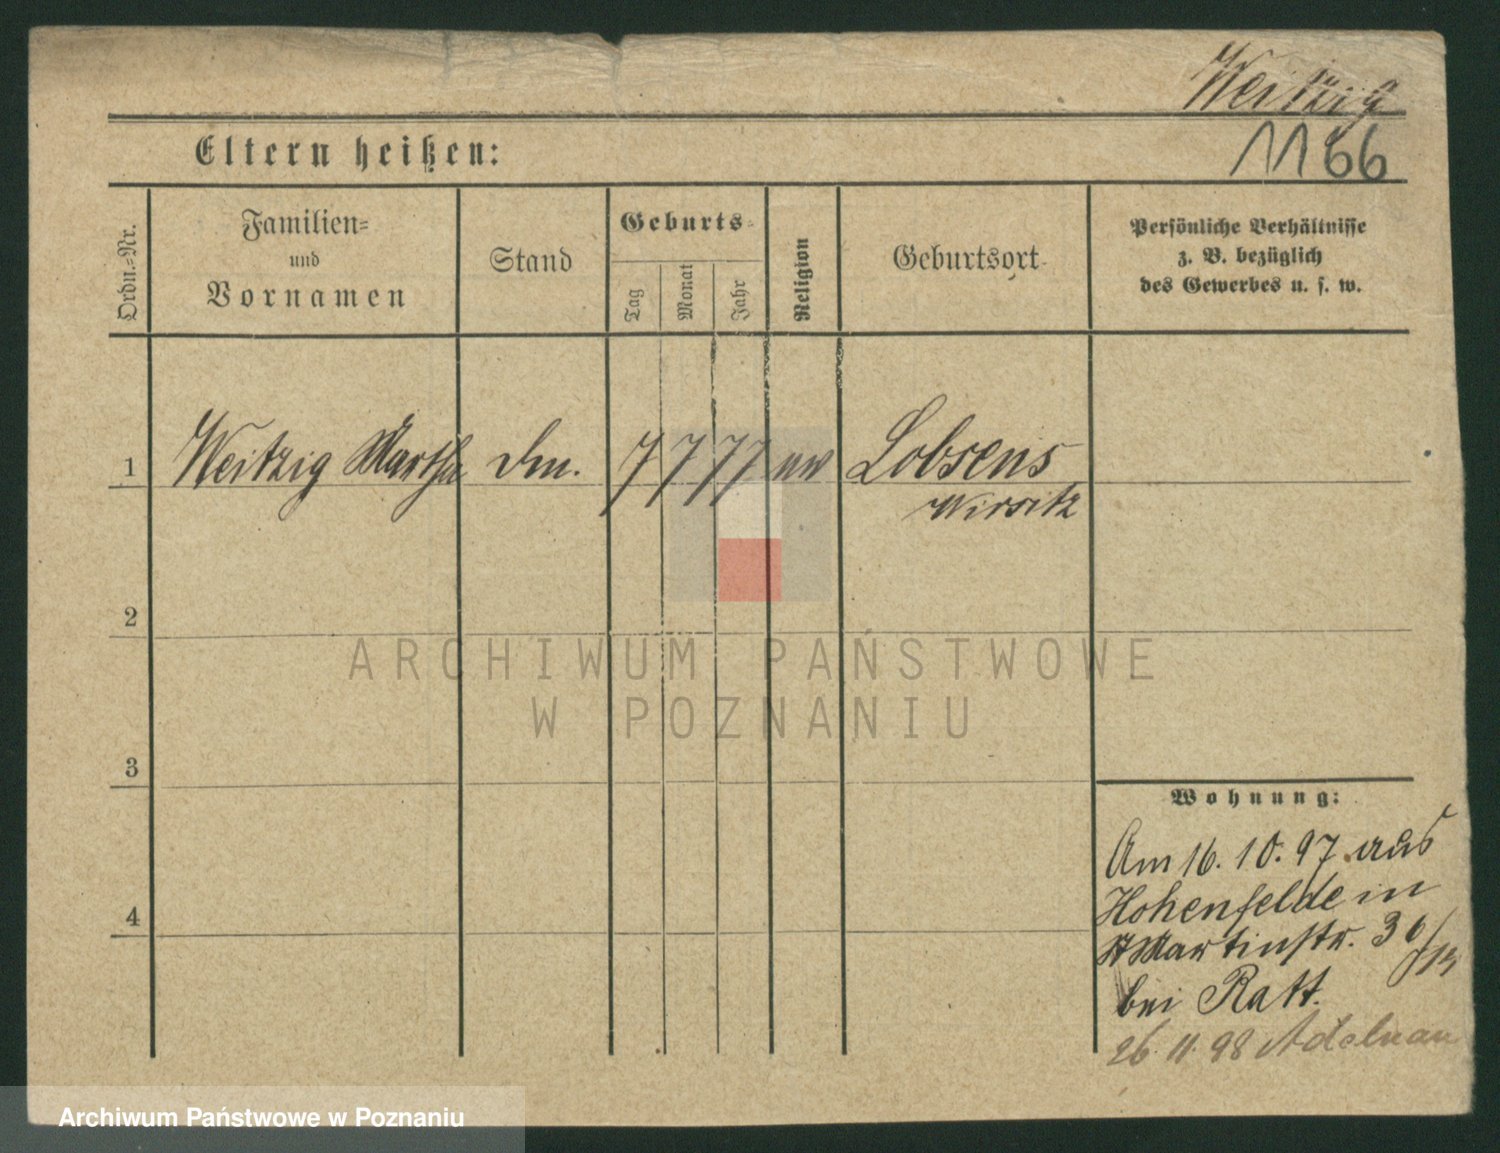 Weitzig
1166
Eltern heißen:
Ordn.-Nr.
Familien-
und
Vornamen
Stand
Geburts-
Tag
Monat
Jahr
Religion
Geburtsort
Persönliche Verhältnisse
z. B. bezüglich
des Gewerbes u. s. w.
1
Weitzig Martha
7 7 77
Lobsens
Wirsitz
2
3
4
Wohnung:
Am 16. 10. 97 aus
Hohenfelde in
St Martinstr. 36/
bei Ratt.
26. 11. 98 Adelnau
ARCHIWUM PAŃSTWOWE
W POZNANIU
Archiwum Państwowe w Poznaniu